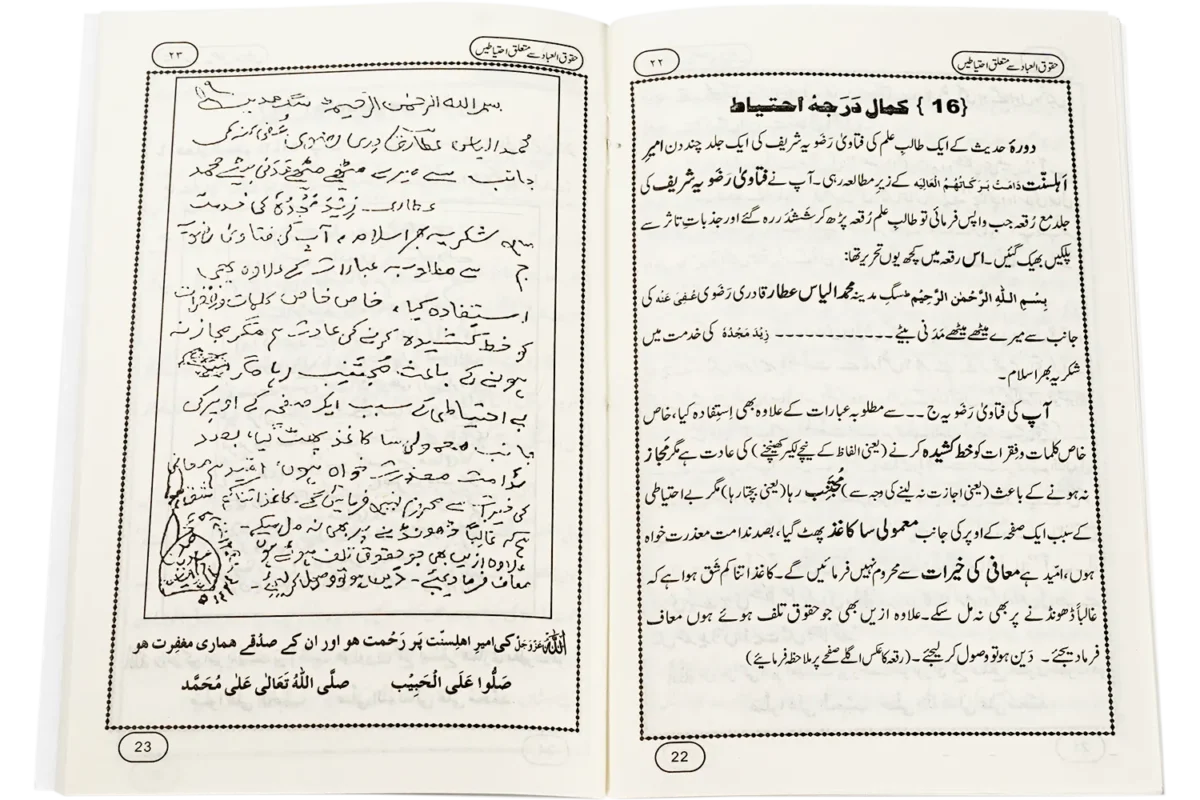 حقوق العباد سے متعلق احتیاطیں
۲۲
{16} کمال دَرَجہ احتیاط
دورۂ حدیث کے ایک طالبِ علم کی فتاویٰ رَضَوِیہ شریف کی ایک جلد چند دن امیرِ
اَہلسنّت دَامَتْ بَرَکَاتُہُمُ الْعَالِیَہ کے زیرِ مطالعہ رہی۔ آپ نے فتاویٰ رَضَوِیہ شریف کی
جلد مع رُقعہ جب واپس فرمائی تو طالبِ علم رُقعہ پڑھ کر ششدر رہ گئے اور جذباتِ تاثر سے
پلکیں بھیگ گئیں۔ اس رقعہ میں کچھ یوں تحریر تھا:
بِسْمِ اللّٰہِ الرَّحْمٰنِ الرَّحِیْمِ سگِ مدینہ محمد الیاس عطار قادری رَضَوی عُفِیَ عَنْہ کی
جانب سے میرے میٹھے میٹھے مَدَنی بیٹے ۔۔۔۔۔۔۔۔۔۔۔ زِیْدَ مَجْدُہٗ کی خدمت میں
شکریہ بھرا سلام۔
آپ کی فتاویٰ رَضَوِیہ ج ۔۔ سے مطلوبہ عبارات کے علاوہ بھی اِستِفادہ کیا، خاص
خاص کلمات و فقرات کو خط کشیدہ کرنے (یعنی الفاظ کے نیچے لکیر کھینچنے) کی عادت ہے مگر مَجاز
نہ ہونے کے باعث (یعنی اجازت نہ لینے کی وجہ سے) مُجْتَنِب رہا (یعنی بچتا رہا) مگر بے احتیاطی
کے سبب ایک صفحہ کے اوپر کی جانب معمولی سا کاغذ پھٹ گیا، بصد ندامت معذرت خواہ
ہوں، امّید ہے معافی کی خیرات سے محروم نہیں فرمائیں گے۔ کاغذ اتنا کم شَق ہوا ہے کہ
غالباً ڈھونڈنے پر بھی نہ مل سکے۔ علاوہ ازیں بھی جو حقوق تلف ہوئے ہوں معاف
فرما دیجئے۔ دَین ہو تو وصول کر لیجئے۔ (رقعہ کا عکس اگلے صفحے پر ملاحظہ فرمائیے)
22
حقوق العباد سے متعلق احتیاطیں
۲۳
بسم اللہ الرحمٰن الرحیم سگِ مدینہ
محمد الیاس عطار قادری رضوی عُفِیَ عنہ کی
جانب سے میرے میٹھے میٹھے مَدَنی بیٹے محمد
عطاری زِیدَ مَجْدُہٗ کی خدمت
میں شکریہ بھرا سلام، آپ کی فتاویٰ رضویہ
ج سے مطلوبہ عبارات کے علاوہ بھی
استفادہ کیا، خاص خاص کلمات و فقرات
کو خط کشیدہ کرنے کی عادت ہے مگر مجاز نہ
ہونے کے باعث مُجْتَنِب رہا مگر
بے احتیاطی کے سبب ایک صفحہ کے اوپر کی
جانب معمولی سا کاغذ پھٹ گیا، بصد
ندامت معذرت خواہ ہوں، امید ہے معافی
کی خیرات سے محروم نہیں فرمائیں گے۔ کاغذ اتنا کم شق ہوا
ہے کہ غالباً ڈھونڈنے پر بھی نہ مل سکے۔
علاوہ ازیں بھی جو حقوق تلف ہوئے ہوں
معاف فرما دیجئے۔ دَین ہو تو وصول کر لیجئے
اللّٰہ عَزَّوَجَلَّ کی امیرِ اَہلسنّت پَر رَحْمت ہو اور ان کے صَدْقے ہماری مغفِرت ہو
صَلُّوا عَلَی الْحَبِیْب صلَّی اللّٰہُ تَعَالٰی عَلٰی مُحَمَّد
23